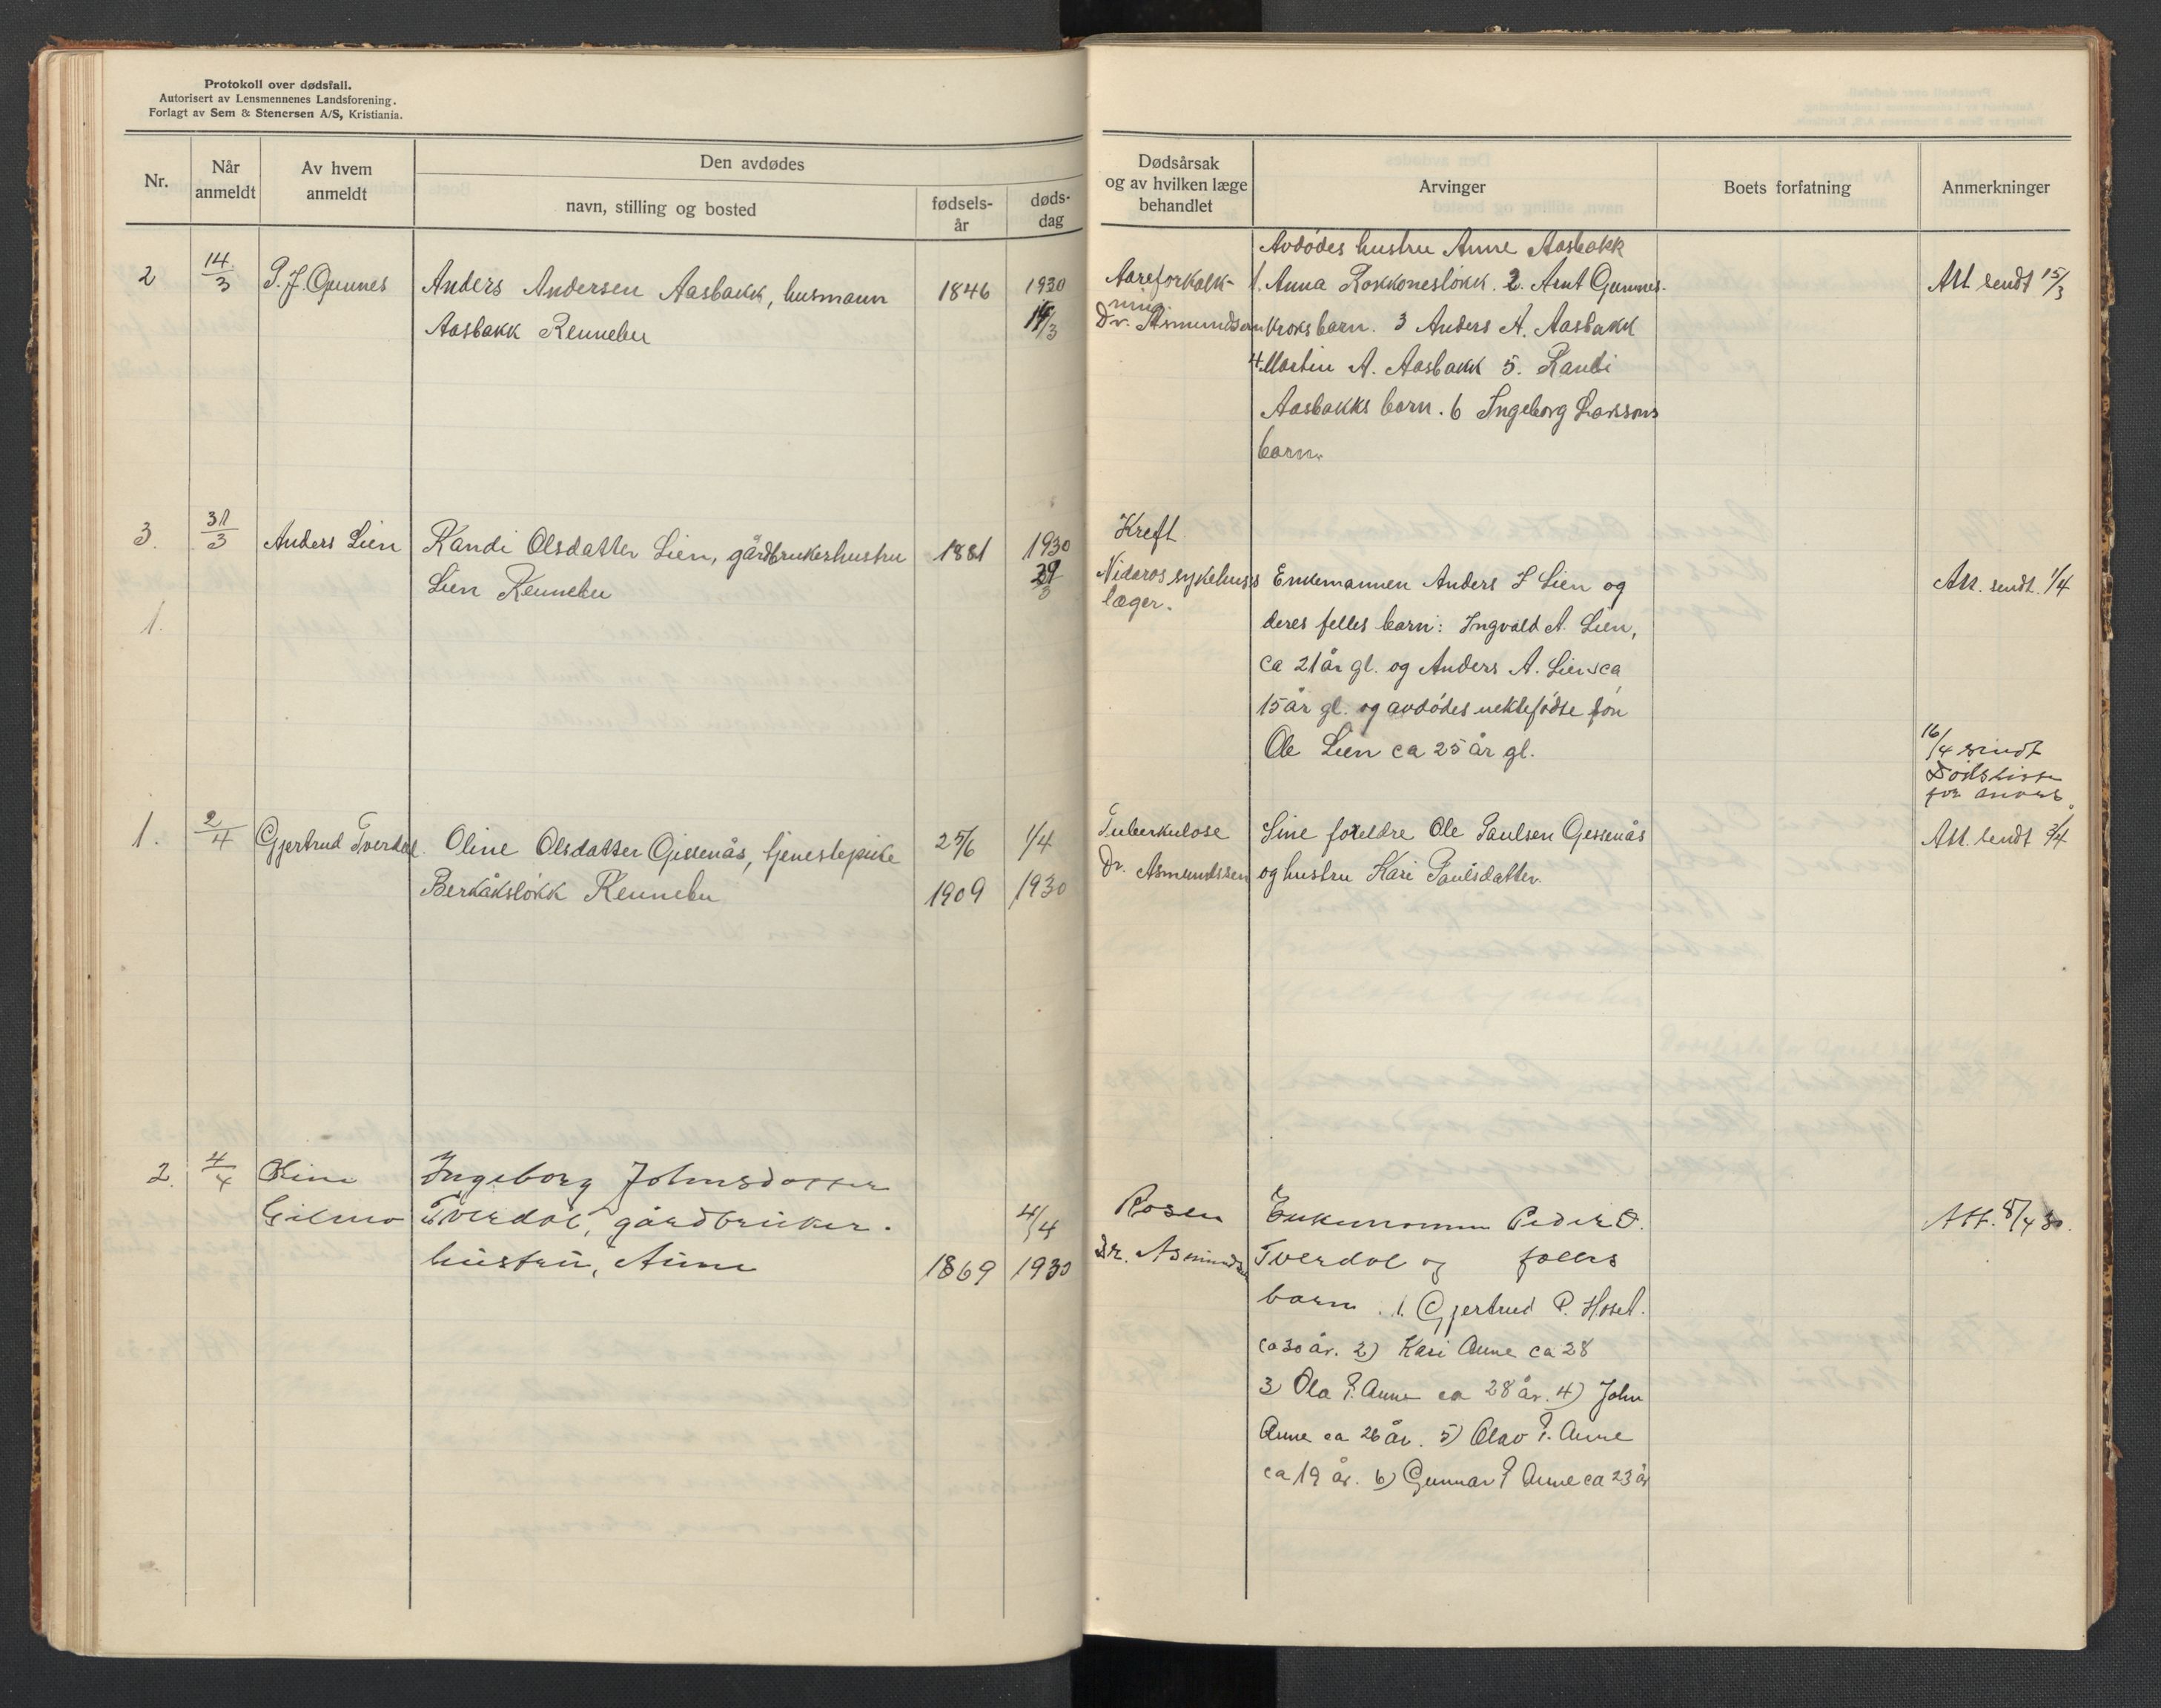 Protokoll over dødsfall.
Autorisert av Lensmennenes Landsforening.
Forlagt av Sem & Stenersen A/S, Kristiania.
Nr.
Når
anmeldt
Av hvem
anmeldt
Den avdødes
navn, stilling og bosted
fødsels-
år
døds-
dag
Dødsårsak
og av hvilken læge
behandlet
Arvinger
Boets forfatning
Anmerkninger
2
14/3
P. J. Gunnes
Anders Andersen Aasbakk, husmann
Aasbakk Rennebu
1846
1930
14/3
Aareforkalk-
ning.
Dr. Asmundsen
Avdødes hustru Anne Aasbakk
1. Anna Rokkonesløkk. 2. Arnt Gunnes-
kroks barn. 3 Anders A. Aasbakk
4 Martin A. Aasbakk 5. Randi
Aasbakks barn. 6 Ingeborg Larssons
barn.
Att. sendt 15/3
3.
31/3
Anders Lien
Randi Olsdatter Lien, gårdbrukerhustru
Lien Rennebu
1881
1930
29/3
Kreft
Nidaros sykehus's
læger.
Enkemannen Anders J Lien og
deres felles barn: Ingvald A. Lien,
ca 21 år gl. og Anders A. Lien ca
15 år gl. og avdødes uektefødte søn
Ole Lien ca 25 år gl.
Att. sendt. 1/4
1.
16/4 sendt
Dødsliste
for
1.
2/4
Gjertrud Tverdal
Oline Olsdatter Gissenås, tjenestepike
Berkåksløkk Rennebu
25/6
1909
1/4
1930
Tuberkulose
Dr. Asmundssen
Sine foreldre Ole Paulsen Gessenås
og hustru Kari Paulsdatter.
Att. sendt 3/4
2.
4/4
Oline
Gilmo
Ingeborg Johnsdatter
Tverdal, gårdbruker-
hustru, Aune
1869
4/4
1930
Rosen
Dr. Asmundsen
Enkemannen Peder O.
Tverdal og felles
barn. 1. Gjertrud P. Hoset.
ca 30 år. 2) Kari Aune ca 28
3) Ola P. Aune ca 28 år. 4) John
Aune ca 26 år. 5) Olav P. Aune
ca 19 år. 6) Gunnar P Aune ca 23 år
Att. 8/4 30.